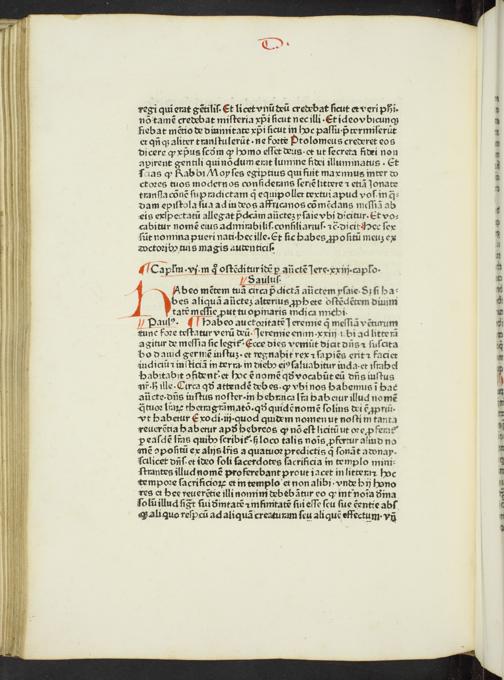 regi qui erat gētilis· Et licet vnū deū credebat sicut et veri phi·
nō tamē credebat misteria xp̄i sicut nec illi· Et ideo vbicunq̄
fiebat mētio de diuinitate xp̄i sicut in hoc passu· p̄termiserūt
et qn̄q̄ aliter transtulerūt· ne forte Ptolomeus crederet eos
dicere q̄ xp̄us scd̄m q̄ homo esset deus· et ut secreta fidei non
apirent gentili qui nōdum erat lumine fidei illuminatus· Et
scias q̄ Rabbi Moyses egiptius qui fuit maximus inter do
ctores tuos modernos considerans sensū littere et etiā Jonate
translacōnē supradictam q̄ equipollet textui apud vos· in q̄
dam epistola sua ad iudeos affricanos cōmēdans messiā ab
eis expectatū allegat p̄dcām auctēz ysaie vbi dicitur· Et vo
cabitur nomē eius admirabilis· consiliarius· ⁊c̄· dicit· Hec sex
sūt nomina pueri nati· hec ille· Et sic habes, ꝓpositū meuz ex
doctoribꝫ tuis magis autenticis·
Capl̄m·vj·in q̄ ostēditur idē p̄ auctē Jere·xxiij·caplo·
Saulus·
Habeo mētem tuā circa p̄dictā auctēm ysaie· Si si ha
bes aliquā auctēz alterius, ꝓphete ostēdētem diuini
tatē messie, put tu opinaris indica michi·
Paulꝰ· Habeo auctoritatē Jeremie q̄ messiā vēturum
tunc fore testatur verū deū· Jeremie enim·xxiij·vbi ad litterā
agitur de messia sic legit̄· Ecce dies veniūt dicit dn̄s ⁊ suscita
bo dauid germē iustuꝫ· et regnabit rex ⁊ sapiēs erit et faciet
iudiciū ⁊ iusticiā in terra· in diebꝫ eiꝰ saluabitur iuda· et israhel
habitabit cōfident̄· et hoc ē nomē qd̄ vocabūt eū dn̄s iustus
nr̄· h̄ ille· Circa qd̄ attendē debes· q̄ vbi nos habemus ī hac
aucte·dn̄s iustus noster·in hebraica lr̄a habetur illud nomē
q̄tuor lr̄aꝝ thetragrāmatō· qd̄ quidē nomē solius dei ē
vt habetur Exodi·iij· quod quidem nomen ut nosti in tanta
reuerētia habetur apd̄ hebreos q̄ nō est licitū vt ore, ꝓferat̄
p̄ easdē lr̄as quibꝫ scribit̄· s̄ loco talis nois, ꝓfertur aliud no
mē ꝯpositū ex alijs lr̄is a quatuor predictis q̄ sonāt adonay·
scilicet dn̄s· et ideo soli sacerdotes sacrificia in templo mini·
strantes illud nomē proferebant prout iacet in littera· ⁊ hoc
tempore sacrificioꝝ et in templo et non alibi· vnde hij hono
res et hec reuerētie illi nomini debebātur eo q̄ int̄ noīa diīna
solū illud sigt̄ sui dīnitatē ⁊ infinitatē sui esse seu sue eentie absꝫ
aliquo respcū ad aliquam creaturam seu aliquē effectum· vn̄